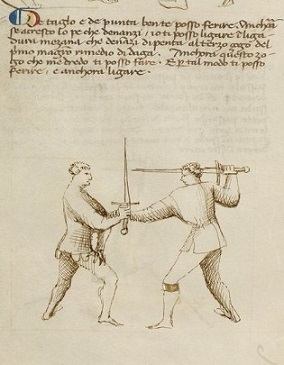 De taglo e de punta ben te posso ferire. Anchora
se acresco lo pe che denanzi / io ti posso ligare di liga
dura mezana che denanzi dipenta al terzo çogo del
primo magro rimedio di daga. Anchora questo zo
gho che me dredo ti posso fare. E p tal modo ti posso
ferire / e anchora ligare.